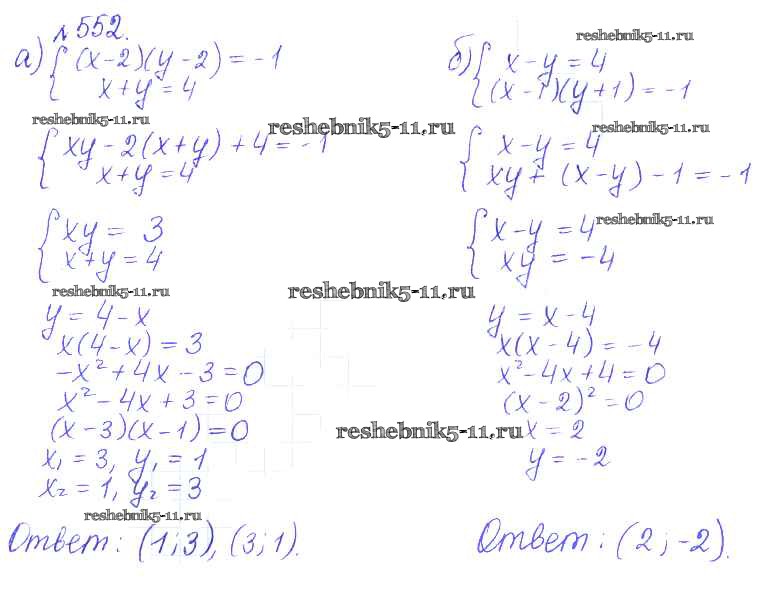 №552.
а) { (x-2)(y-2) = -1
x+y = 4
{ xy - 2(x+y) + 4 = -1
x+y = 4
{ xy = 3
x+y = 4
y = 4-x
x(4-x) = 3
-x² + 4x - 3 = 0
x² - 4x + 3 = 0
(x-3)(x-1) = 0
x₁ = 3, y₁ = 1
x₂ = 1, y₂ = 3
Ответ: (1;3), (3;1).
б) { x-y = 4
(x-1)(y+1) = -1
{ x-y = 4
xy + (x-y) - 1 = -1
{ x-y = 4
xy = -4
y = x-4
x(x-4) = -4
x² - 4x + 4 = 0
(x-2)² = 0
x = 2
y = -2
Ответ: (2; -2).
reshebnik5-11.ru
reshebnik5-11.ru
reshebnik5-11.ru
reshebnik5-11.ru
reshebnik5-11.ru
reshebnik5-11.ru
reshebnik5-11.ru
reshebnik5-11.ru
reshebnik5-11.ru